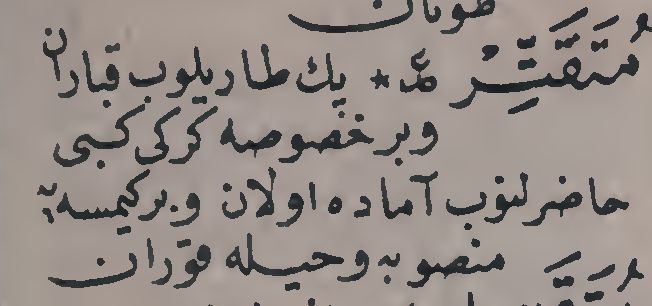 طوبان
مُتَقَتِّرْ ع * يك طاريلوب قباران
وبر خصوصه كركى كبى
حاضرلنوب آماده اولان وبركيمسه‌يه
منصوبه وحيله قوران